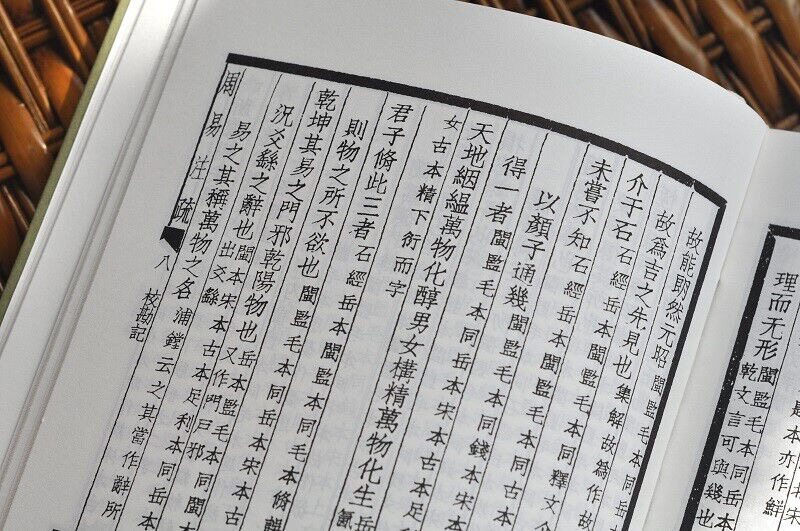 理而无形閩監毛本同岳
乾文言可與幾也
故能朗然元昭閩監毛本同
故爲吉之先見也集解故爲作故
介于石石經岳本閩監毛本同釋文介
未嘗不知石經岳本閩監毛本同古
以顏子通幾閩監毛本同錢本宋本
得一者閩監毛本同岳本宋本古本
天地絪縕萬物化醇男女構精萬物化生
女古本精下衍而字
君子脩此三者石經岳本閩監毛本同
則物之所不欲也閩監毛本同毛本脩
乾坤其易之門邪乾陽物也岳本監毛本同
又作門曰邪
況爻繇之辭也閩本宋本古本足利本同岳本
出爻繇
易之其稱萬物之名浦鏜云之其當作辭所
周易注疏 八 校勘記